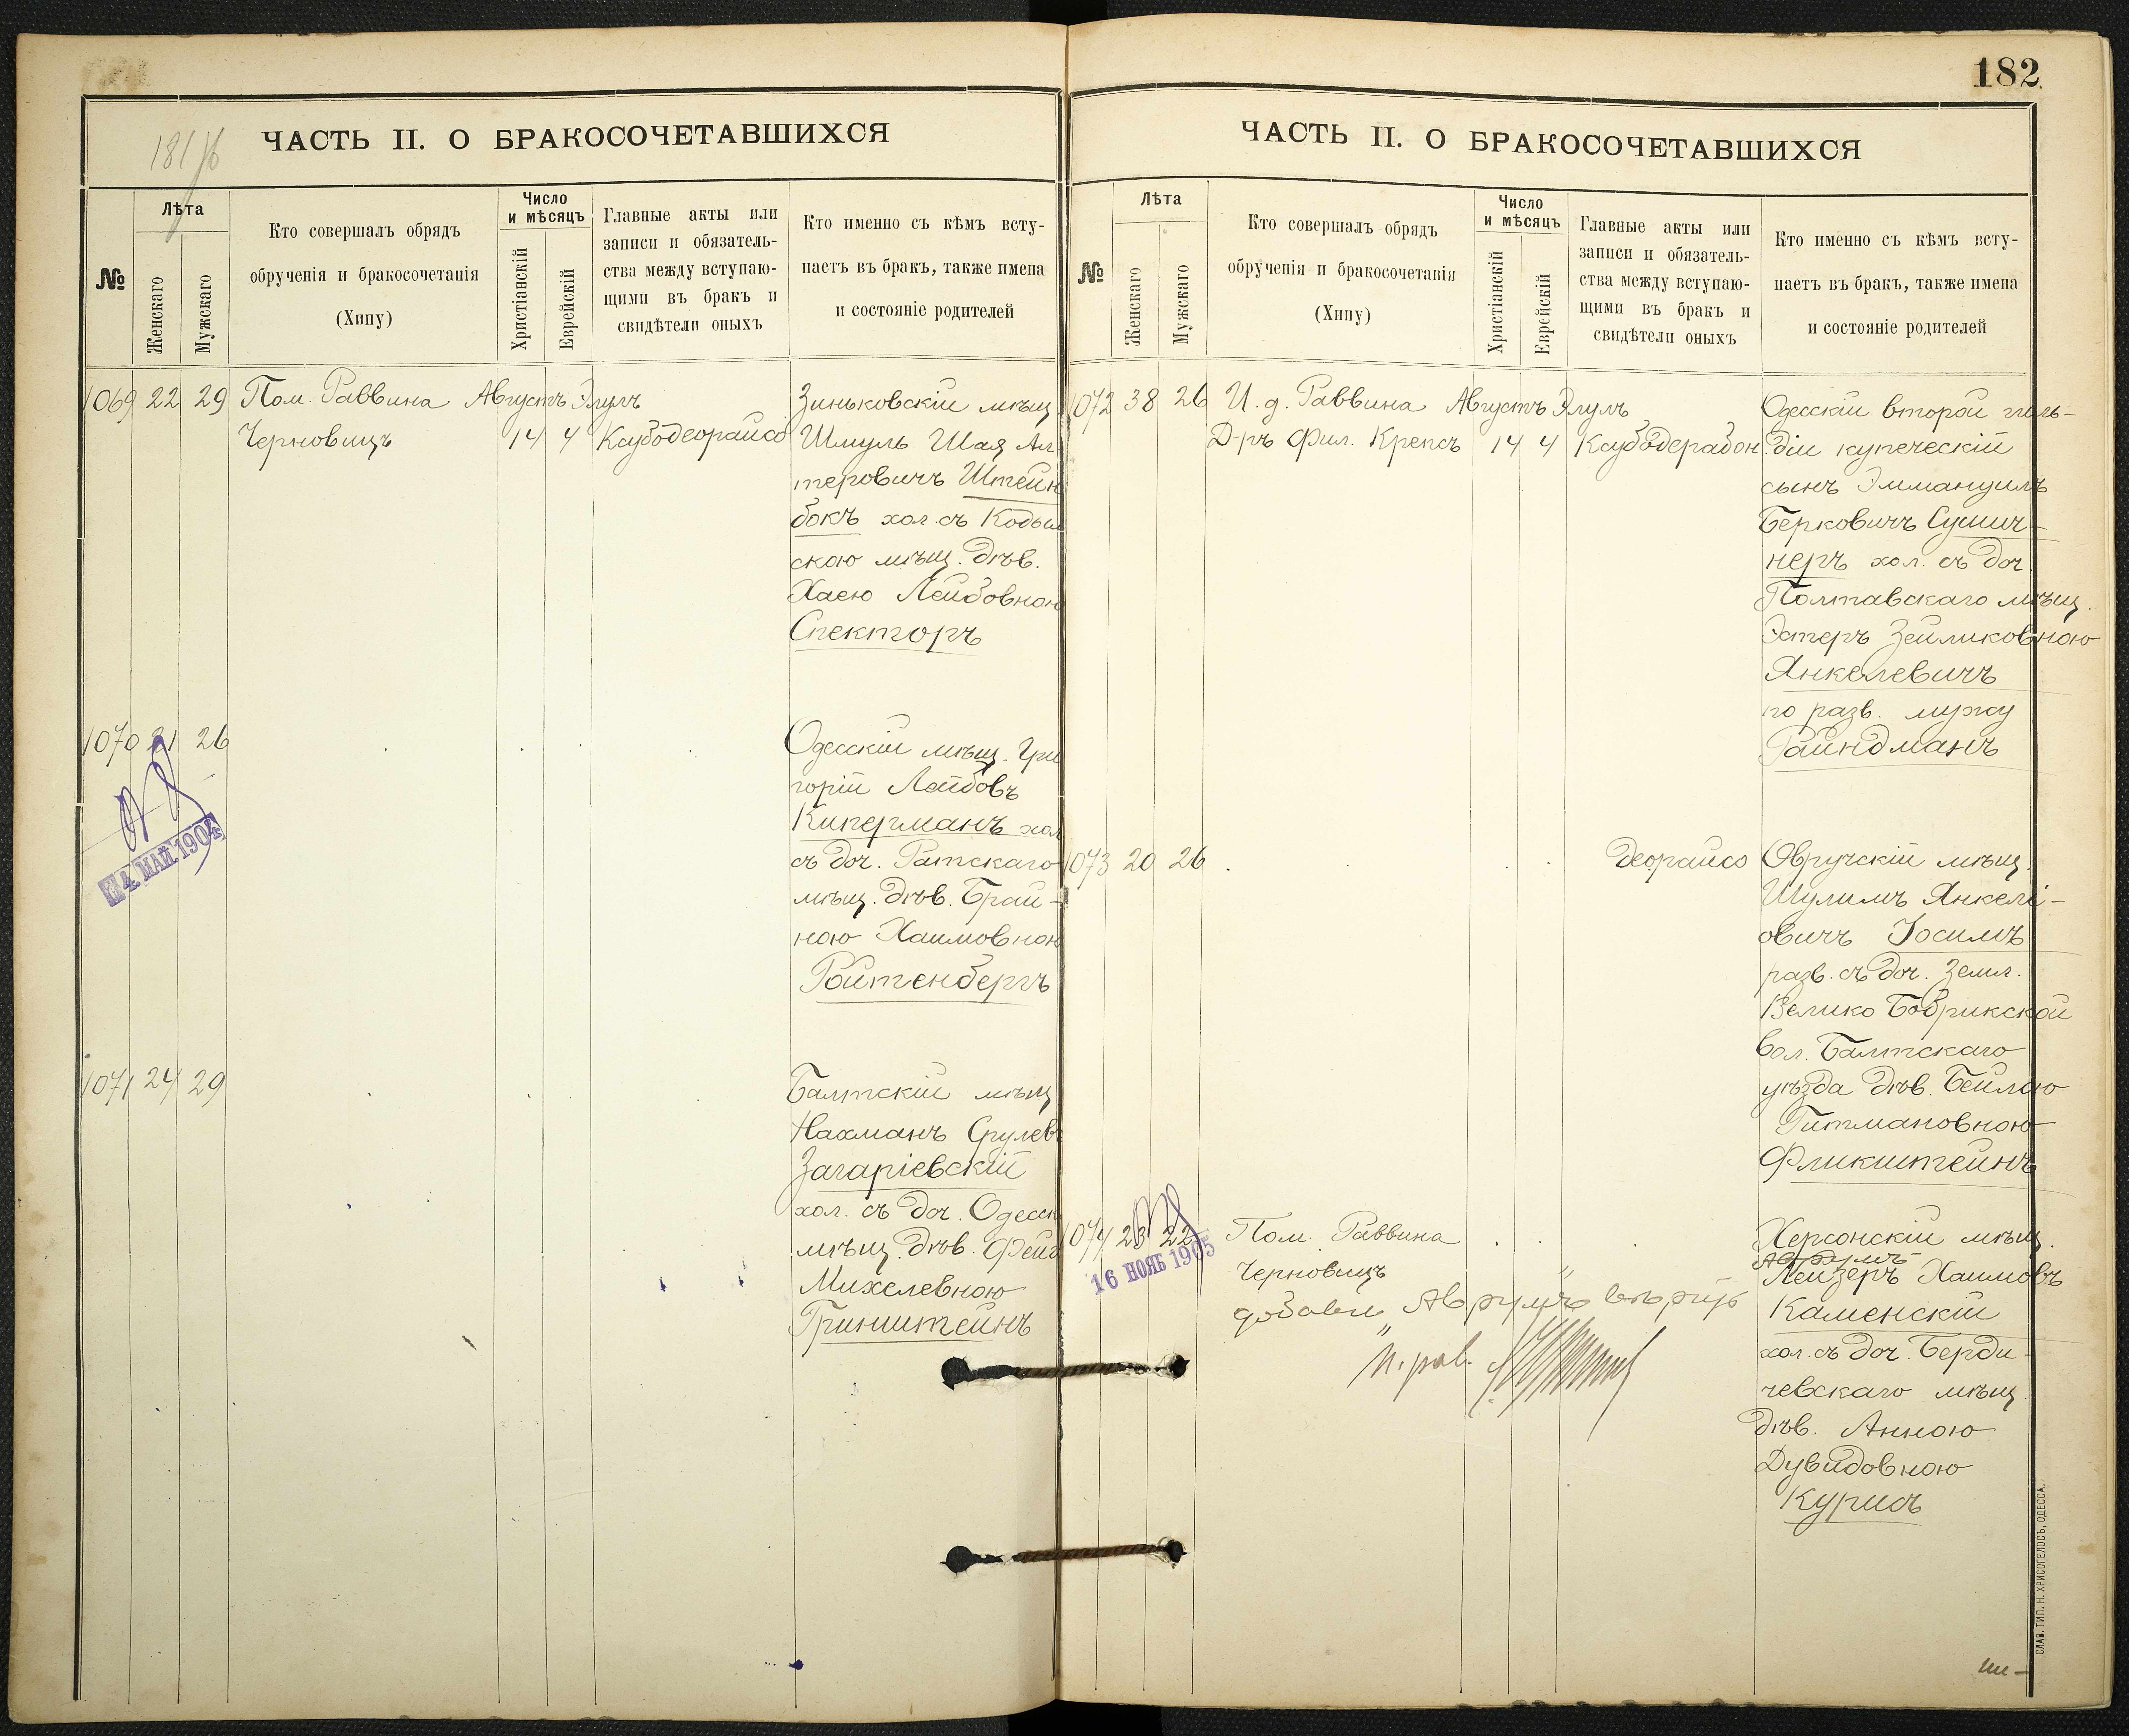 181 об
ЧАСТЬ II. О БРАКОСОЧЕТАВШИХСЯ
№
Лѣта
Женскаго
Мужскаго
Кто совершалъ обрядъ
обрученія и бракосочетанія
(Хипу)
Число
и мѣсяцъ
Христіанскій
Еврейскій
Главные акты или
записи и обязатель-
ства между вступаю-
щими въ бракъ и
свидѣтели оныхъ
Кто именно съ кѣмъ всту-
паетъ въ бракъ, также имена
и состояніе родителей
1069 22 29 Пом. Раввина Августъ Элулъ
Черновицъ 14 4 Каубодеорайсо
Зиньковскій мѣщ
Шмуль Шая Ал
теровичъ Штейн
бокъ хол. съ Кодым
скою мѣщ. дѣв.
Хаею Лейбовною
Спекторъ
1070 21 26
4 МАЙ 1904
Одесскій мѣщ. Гри
горій Лейбовъ
Киперманъ хол
съ доч. Ратскаго
мѣщ. дѣв. Брай-
ною Хаимовною
Ройтенбергъ
1071 24 29
Балтскій мѣщ
Нахманъ Срулевъ
Загаріевскій
хол. съ доч. Одесск
мѣщ. дѣв. Фейг
Михелевною
Гринштейнъ
182
ЧАСТЬ II. О БРАКОСОЧЕТАВШИХСЯ
№
Лѣта
Женскаго
Мужскаго
Кто совершалъ обрядъ
обрученія и бракосочетанія
(Хипу)
Число
и мѣсяцъ
Христіанскій
Еврейскій
Главные акты или
записи и обязатель-
ства между вступаю-
щими въ бракъ и
свидѣтели оныхъ
Кто именно съ кѣмъ всту-
паетъ въ бракъ, также имена
и состояніе родителей
1072 38 26 И. д. Раввина Августъ Элулъ
Д-ръ Фил. Крепсъ 14 4 Каубодерабон.
Одесскій второй гиль-
діи купеческій
сынъ Эммануилъ
Берковичъ
неръ хол. съ доч.
Полтавскаго мѣщ.
Эстеръ Зейликовною
Янкелевичъ
по разв. мужу
Райндманъ
1073 20 26 деорайсо
Овручскій мѣщ.
Шулимъ Янкелі-
овичъ Іосимъ
разв. съ доч. Земл.
Велико Бобрикской
вол. Балтскаго
уѣзда дѣв. Бейлою
Гитмановною
Фликштейнъ
1074 23 22 Пом. Раввина
Черновицъ
16 НОЯБ 1905
добавл. „Аврумъ“ вѣрно
п. рав.
Херсонскій мѣщ.
Аврумъ
Лейзеръ Хаимовъ
Каменскій
хол. съ доч. Берди-
чевскаго мѣщ.
дѣв. Анною
Дувидовною
Курисъ
СЛАВ. ТИП. Н. ХРИСОГЕЛОСЪ, ОДЕССА.